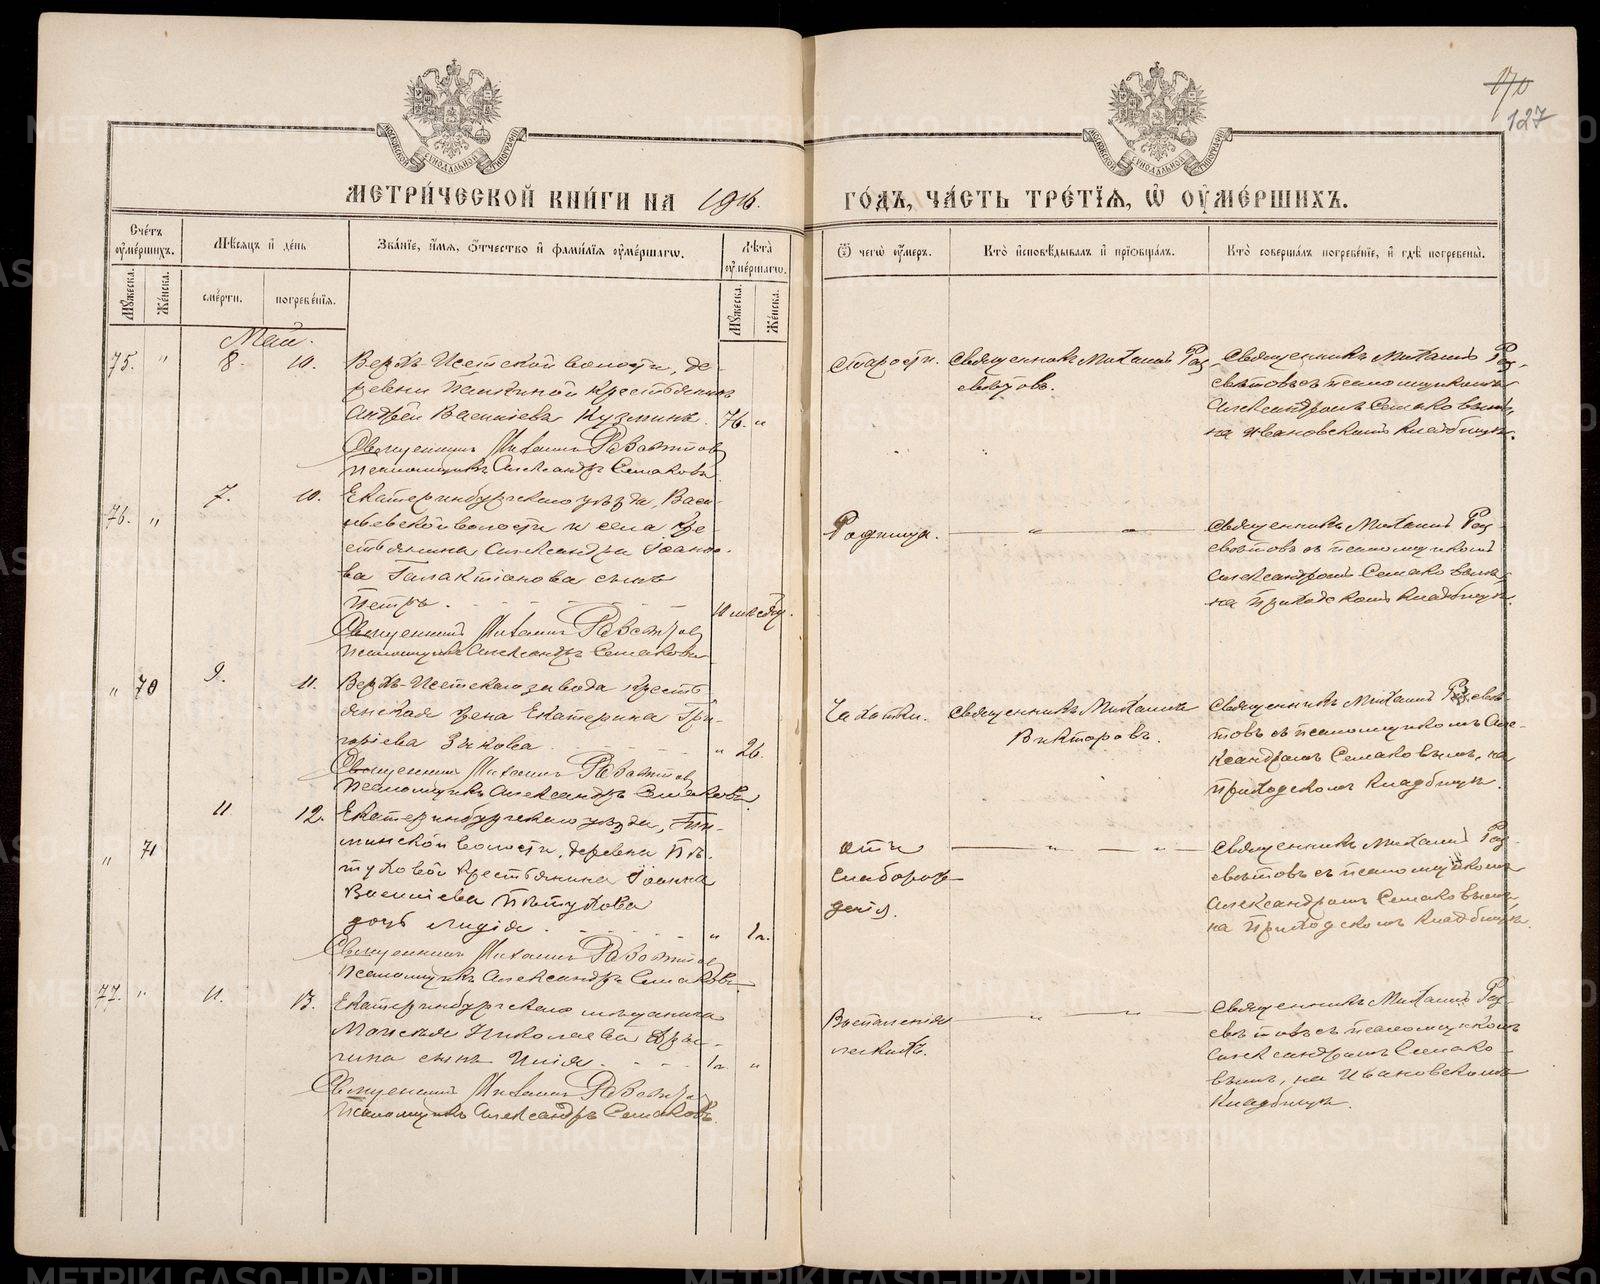 170
127
МОСКОВСКОЙ СИНОДАЛЬНОЙ ТИПОГРАФІИ
МОСКОВСКОЙ СИНОДАЛЬНОЙ ТИПОГРАФІИ
МЕТРИ́ЧЕСКОЙ КНИ́ГИ НА 1916. ГО́ДЪ, ЧА́СТЬ ТРЕ́ТІѦ, Ѽ ОУМЕ́РШИХЪ.
Сче́тъ оуме́ршихъ.
Мѣ́сяцъ и де́нь
Зва́ніе, и́мя, о́тчество и фами́лія оуме́ршаго.
Лѣ́та оуме́ршаго.
Ѿ чегѡ̀ оу́меръ.
Кто̀ исповѣ́дывалъ и пріѡбща́лъ.
Кто̀ соверша́лъ погребе́ніе, и гдѣ̀ погребены̀.
Мꙋ́жеска.
Же́нска.
сме́рти.
погребе́нія.
Мꙋ́жеска.
Же́нска.
Май.
75. " 8. 10. Верхъ-Исетской волости, де-
ревни Палкиной крестьянинъ
Андрей Васильевъ Кузминъ. 76. "
Священникъ Михаилъ Разсвѣтовъ
Псаломщикъ Александръ Семаковъ.
Старости.
Священникъ Михаилъ Раз-
свѣтовъ.
Священникъ Михаилъ Раз-
свѣтовъ съ псаломщикомъ
Александромъ Семаковымъ,
на Ивановскомъ кладбищѣ.
76. " 7. 10. Екатеринбургскаго уѣзда, Васи-
льевской волости и села кре-
стьянина Александра Іоанно-
ва Галактіонова сынъ
Петръ. 10 мѣсяц.
Священникъ Михаилъ Разсвѣтовъ
Псаломщикъ Александръ Семаковъ
Родимца. — " — " —
Священникъ Михаилъ Раз-
свѣтовъ съ псаломщикомъ
Александромъ Семаковымъ,
на приходскомъ кладбищѣ.
" 70 9. 11. Верхъ-Исетскаго завода крестъ-
янская жена Екатерина Гри-
горіева Зыкова. " 26.
Священникъ Михаилъ Разсвѣтовъ
Псаломщикъ Александръ Семаковъ.
Чахотки.
Священникъ Михаилъ
Викторовъ.
Священникъ Михаилъ Разсвѣ-
товъ съ псаломщикомъ Але-
ксандромъ Семаковымъ, на
приходскомъ кладбищѣ.
" 71 11 12. Екатеринбургскаго уѣзда,
волости, деревни Пѣ-
туховой крестьянина Іоанна
Васильева Пѣтухова
дочь Лидія. " 1 г.
Священникъ Михаилъ Разсвѣтовъ
Псаломщикъ Александръ Семаковъ
отъ
слаборож-
денія.
— " — " —
Священникъ Михаилъ Раз-
свѣтовъ съ псаломщикомъ
Александромъ Семаковымъ,
на приходскомъ кладбищѣ.
77. " 11. 13. Екатеринбургскаго мѣщанина
Моисея Николаева
сынъ Илія. 1 г. "
Священникъ Михаилъ Разсвѣтовъ
Псаломщикъ Александръ Семаковъ.
Воспаленія
легкихъ.
— " — " —
Священникъ Михаилъ Раз-
свѣтовъ съ псаломщикомъ
Александромъ Семако-
вымъ, на Ивановскомъ
кладбищѣ.
METRIKI.GASO-URAL.RU